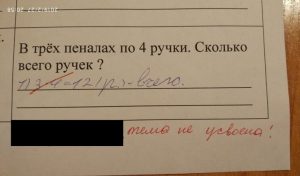 В трёх пеналах по 4 ручки. Сколько
всего ручек ?
1) 3·4=12(р)-всего.
тема не усвоена!